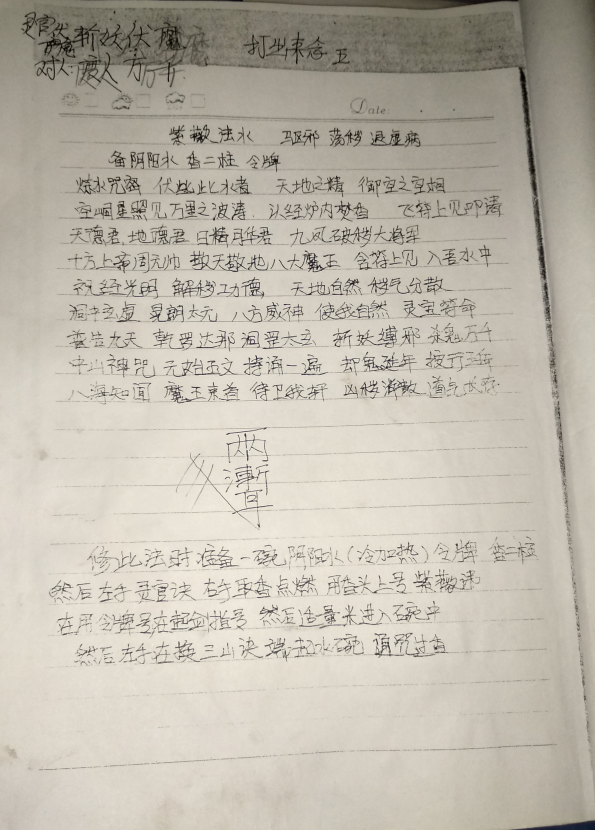 灵官
斩妖伏魔
对人
打出来念
Date:
紫薇法水 驱邪 荡秽 退虚病
备阴阳水 香二柱 令牌
炼水咒 伏此此水者 天地之精
空 星照见万里之波涛 炉内焚香 飞符上见
天德君 地德君 日精月华君 九凤破秽大将军
十方上帝周元帅 敕天敕地八大魔王 含符上见 入吾水中
光明 解秽功德 天地自然 秽气分散
洞中玄虚 晃朗太元 八方威神 使我自然 灵宝符命
普告九天 乾罗达那 洞罡太玄 斩妖缚邪 杀鬼万千
中山神咒 元始玉文 持诵一遍 却鬼延年 按行五
八海知闻 魔王束首 侍卫我轩 凶秽消散 道气
修此法时准备一碗阴阳水(冷加热)令牌 香二柱
然后左手灵官诀 右手 香点燃 用香头上号 紫薇讳
在用令牌号在起剑指号 然后适量米进入碗中
然后左手在换三山诀 端起水碗 诵咒